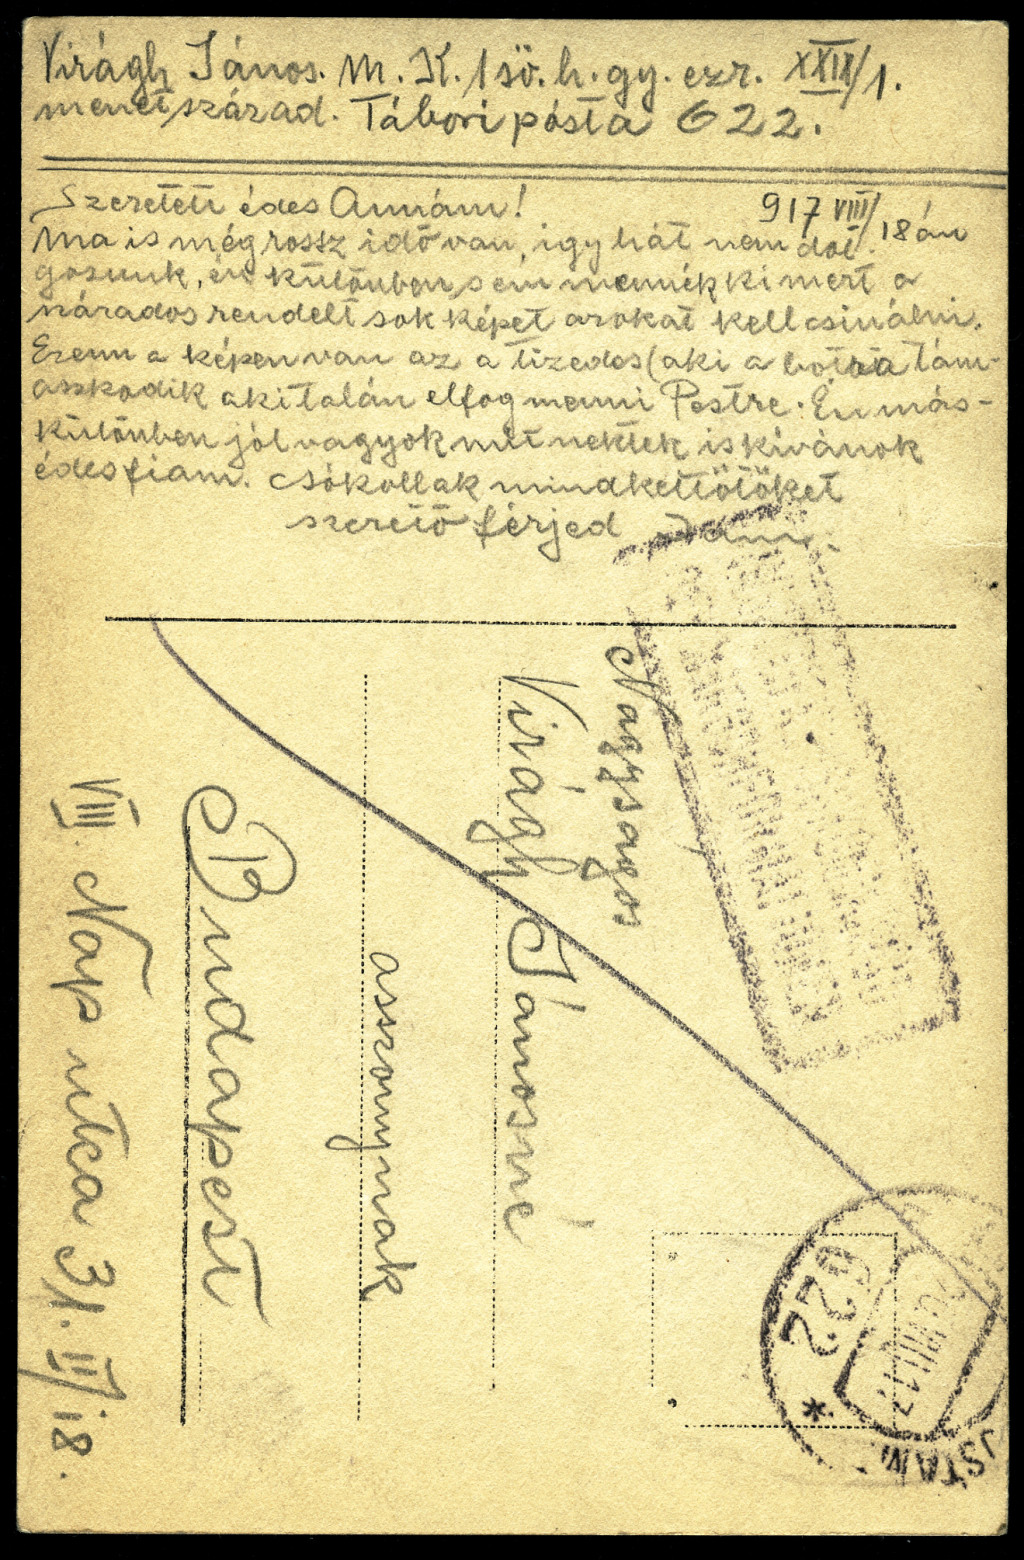 Virágh János. M. K. 1 sö. h. gy. ezr. XXIX/1.
menet század. Tábori pósta 622.
Szeretett édes Annám!
917 VIII/18 án
Ma is még rossz idő van, igy hát nem dol-
gozunk, én különben sem mennék ki mert a
százados rendelt sok képet azokat kell csinálni.
Ezenn a képen van az a tizedes (aki a botra tám-
aszkodik aki talán elfog menni Pestre. Én más-
különben jól vagyok mit nektek is kívánok
édes fiam. Csókollak mindkettőtöket
szerető férjed Jani.
Nagysagos
Virágh Jánosné
asszonynak
Budapest
VIII. Nap utca 31. II/18.
622